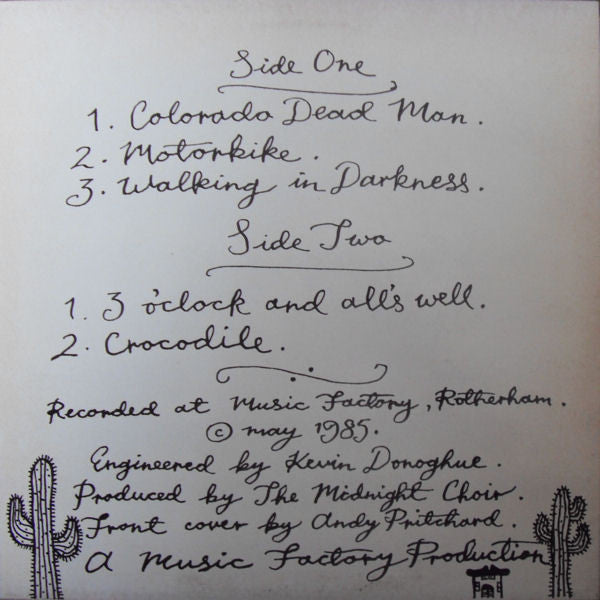 Side One
1. Colorado Dead Man.
2. Motorbike.
3. Walking in Darkness.
Side Two
1. 3 o'clock and all's well.
2. Crocodile.
Recorded at Music Factory, Rotherham.
© may 1985.
Engineered by Kevin Donoghue.
Produced by The Midnight Choir.
Front cover by Andy Pritchard.
A Music Factory Production